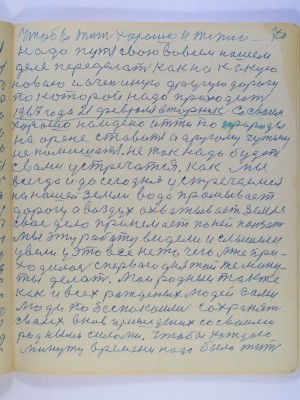 Чтобы жить хорошо и тепло
надо путь свою во всем нашем
деле переделать как на какую
новаю и очен иную другую дорогу
по которой надо приходит
1967 года 21 февраля вторник с своим
хорошо найдено итти по природи
на арене ставит а другому чужому
не помишает. Не так надо будет
с вами устречатся, как мы
всегда и до сегодня устречаемся
на нашей земли вода промывает
дорогу а воздух охватывает земля
свае дело принемает по ней
мы эту работу видели и слышили
увели у это все не то чего мне при-
ходилось с первого дня той же мину-
ты делат. Маи родныи также
как и всех рожденых людей сами
люди по беспокоили сохранят
своих внов пришедших со своими
родными силами. Чтобы каждаю
минуту времени надо было жит